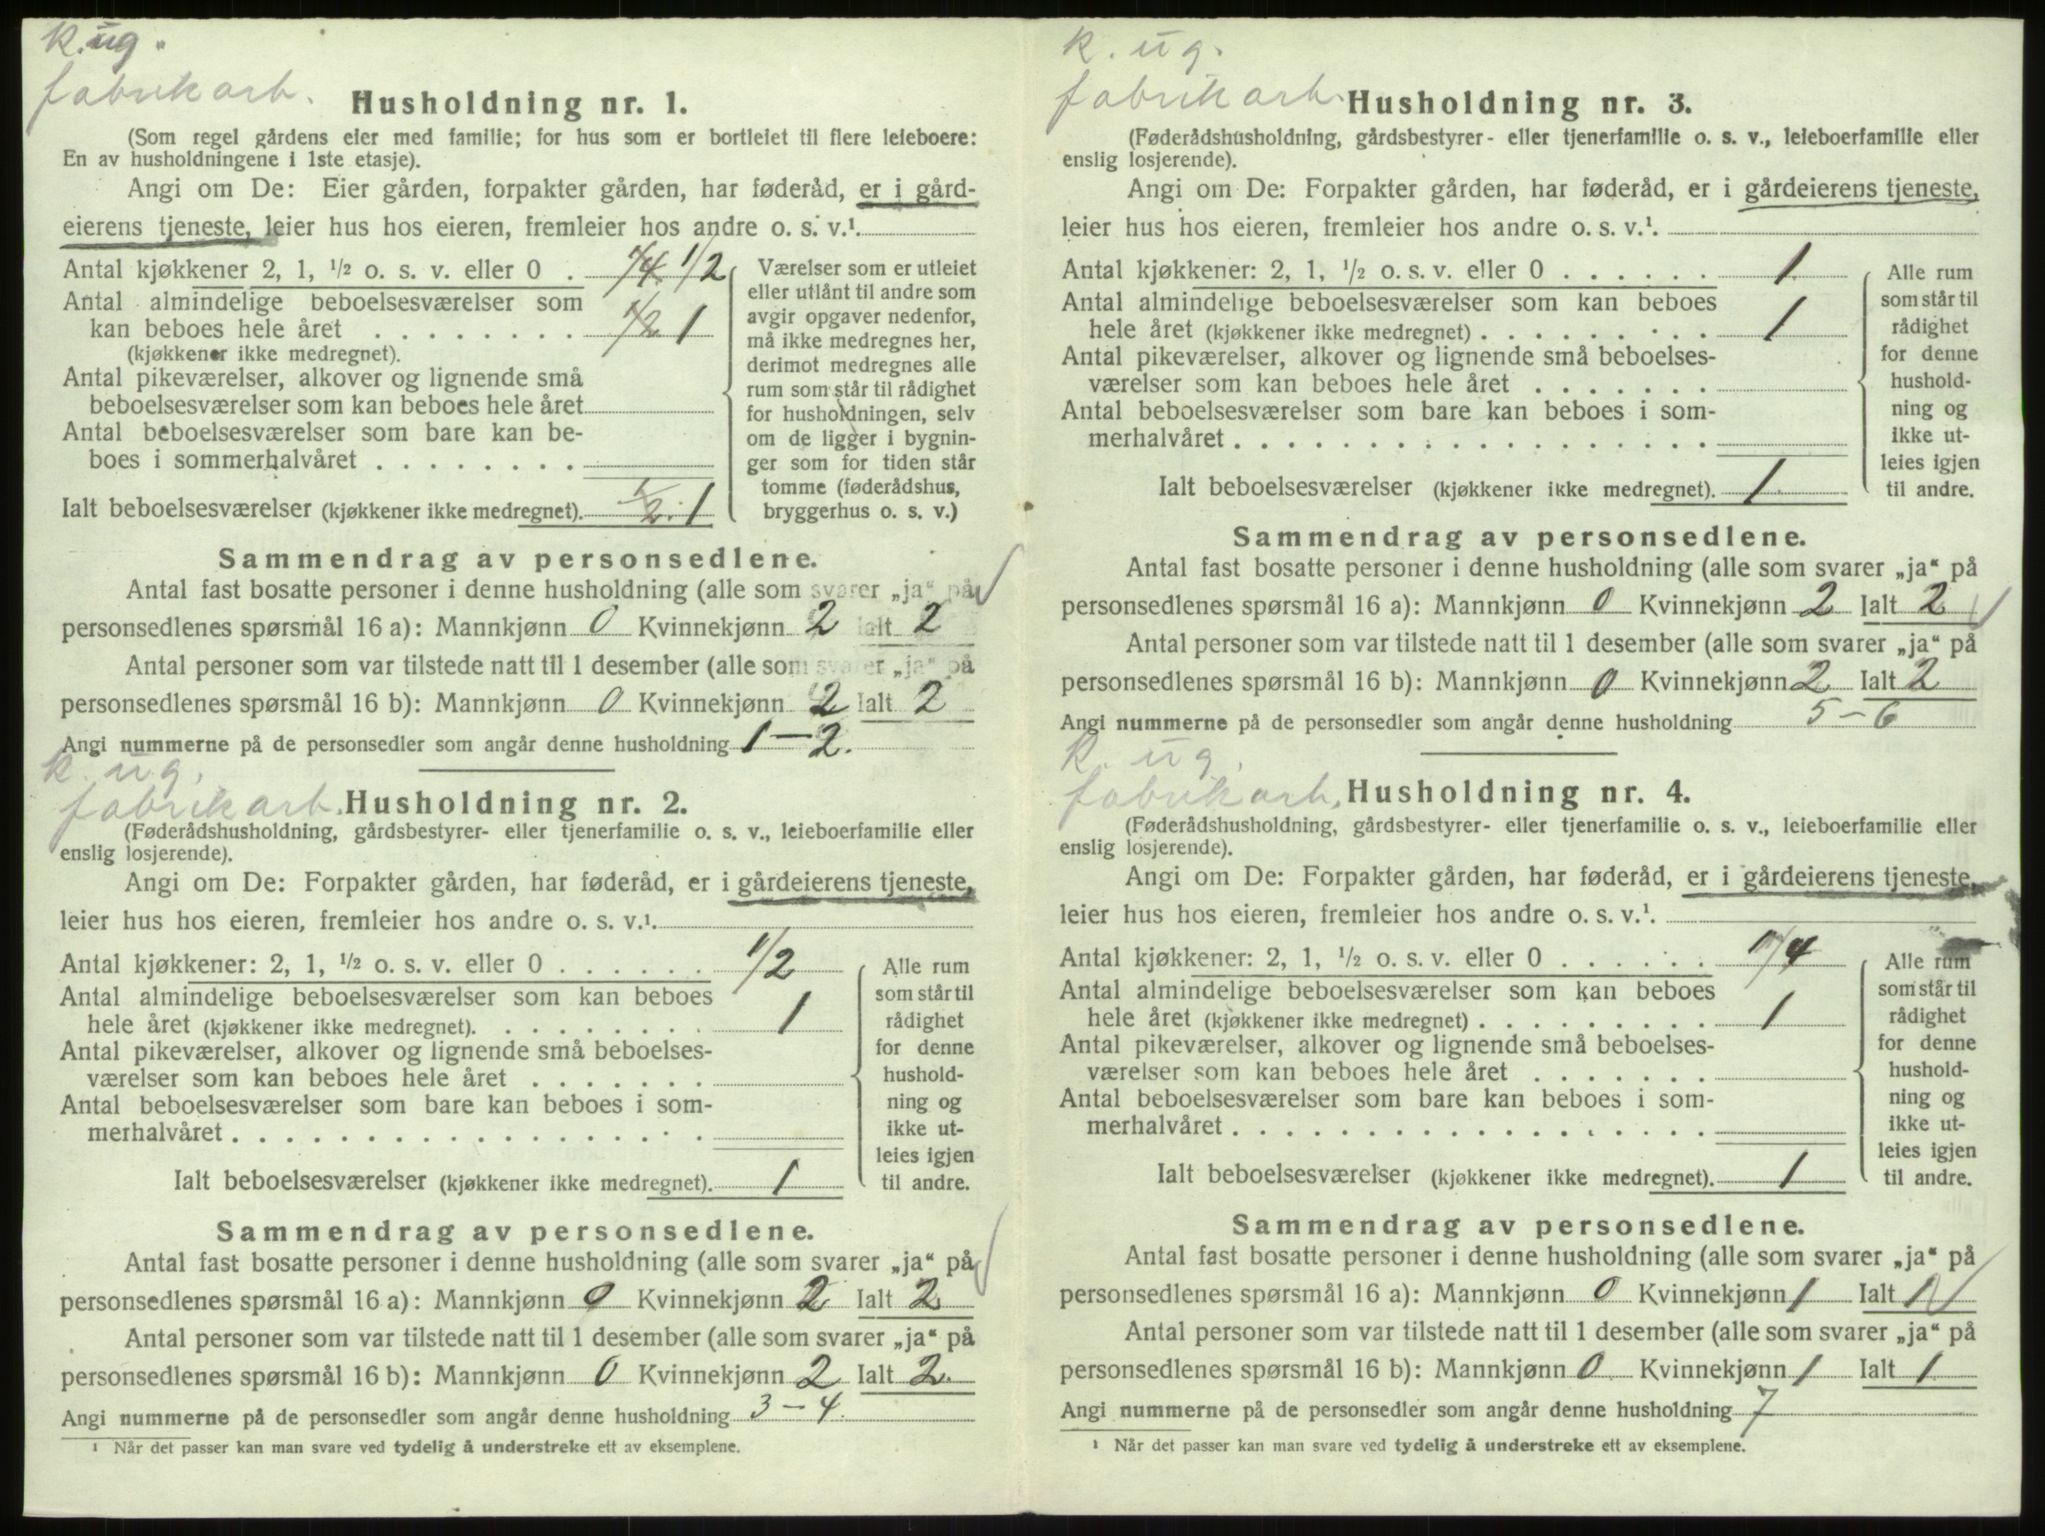 k. ug.
fabrikarb.
Husholdning nr. 1.
(Som regel gårdens eier med familie; for hus som er bortleiet til flere leieboere:
En av husholdningene i 1ste etasje).
Angi om De: Eier gården, forpakter gården, har føderåd, er i gård-
eierens tjeneste, leier hus hos eieren, fremleier hos andre o. s. v.¹.
Antal kjøkkener 2, 1, ½ o. s. v. eller 0 . 1/4 1/2
Antal almindelige beboelsesværelser som
kan beboes hele året . . . . . . . . 1/2 1
(kjøkkener ikke medregnet).
Antal pikeværelser, alkover og lignende små
beboelsesværelser som kan beboes hele året
Antal beboelsesværelser som bare kan be-
boes i sommerhalvåret . . . . . . . .
Ialt beboelsesværelser (kjøkkener ikke medregnet). 1/2. 1
Værelser som er utleiet
eller utlånt til andre som
avgir opgaver nedenfor,
må ikke medregnes her,
derimot medregnes alle
rum som står til rådighet
for husholdningen, selv
om de ligger i bygnin-
ger som for tiden står
tomme (føderådshus,
bryggerhus o. s. v.)
Sammendrag av personsedlene.
Antal fast bosatte personer i denne husholdning (alle som svarer „ja“ på
personsedlenes spørsmål 16 a): Mannkjønn 0 Kvinnekjønn 2 Ialt 2
Antal personer som var tilstede natt til 1 desember (alle som svarer „ja“ på
personsedlenes spørsmål 16 b): Mannkjønn 0 Kvinnekjønn 2 Ialt 2
Angi nummerne på de personsedler som angår denne husholdning 1 – 2.
k. ug.
fabrikarb.
Husholdning nr. 2.
(Føderådshusholdning, gårdsbestyrer- eller tjenerfamilie o. s. v., leieboerfamilie eller
enslig losjerende).
Angi om De: Forpakter gården, har føderåd, er i gårdeierens tjeneste,
leier hus hos eieren, fremleier hos andre o. s. v.¹.
Antal kjøkkener: 2, 1, ½ o. s. v. eller 0 . . . . . . 1/2
Antal almindelige beboelsesværelser som kan beboes
hele året (kjøkkener ikke medregnet). . . . . . . . . 1
Antal pikeværelser, alkover og lignende små beboelses-
værelser som kan beboes hele året . . . . . . .
Antal beboelsesværelser som bare kan beboes i som-
merhalvåret . . . . . . . . . . . . . . . . . .
Ialt beboelsesværelser (kjøkkener ikke medregnet). 1
Alle rum
som står til
rådighet
for denne
hushold-
ning og
ikke ut-
leies igjen
til andre.
Sammendrag av personsedlene.
Antal fast bosatte personer i denne husholdning (alle som svarer „ja“ på
personsedlenes spørsmål 16 a): Mannkjønn 0 Kvinnekjønn 2 Ialt 2
Antal personer som var tilstede natt til 1 desember (alle som svarer „ja“ på
personsedlenes spørsmål 16 b): Mannkjønn 0 Kvinnekjønn 2 Ialt 2.
Angi nummerne på de personsedler som angår denne husholdning 3 – 4.
¹ Når det passer kan man svare ved tydelig å understreke ett av eksemplene.
k. ug.
fabrikarb.
Husholdning nr. 3.
(Føderådshusholdning, gårdsbestyrer- eller tjenerfamilie o. s. v., leieboerfamilie eller
enslig losjerende).
Angi om De: Forpakter gården, har føderåd, er i gårdeierens tjeneste,
leier hus hos eieren, fremleier hos andre o. s. v.¹.
Antal kjøkkener: 2, 1, ½ o. s. v. eller 0 . . . . . . 1
Antal almindelige beboelsesværelser som kan beboes
hele året (kjøkkener ikke medregnet) . . . . . . . . . 1
Antal pikeværelser, alkover og lignende små beboelses-
værelser som kan beboes hele året . . . . . . .
Antal beboelsesværelser som bare kan beboes i som-
merhalvåret . . . . . . . . . . . . . . . . . .
Ialt beboelsesværelser (kjøkkener ikke medregnet). 1
Alle rum
som står til
rådighet
for denne
hushold-
ning og
ikke ut-
leies igjen
til andre.
Sammendrag av personsedlene.
Antal fast bosatte personer i denne husholdning (alle som svarer „ja“ på
personsedlenes spørsmål 16 a): Mannkjønn 0 Kvinnekjønn 2 Ialt 2
Antal personer som var tilstede natt til 1 desember (alle som svarer „ja“ på
personsedlenes spørsmål 16 b): Mannkjønn 0 Kvinnekjønn 2 Ialt 2
Angi nummerne på de personsedler som angår denne husholdning 5 – 6
k. ug.
fabrikarb.
Husholdning nr. 4.
(Føderådshusholdning, gårdsbestyrer- eller tjenerfamilie o. s. v., leieboerfamilie eller
enslig losjerende).
Angi om De: Forpakter gården, har føderåd, er i gårdeierens tjeneste,
leier hus hos eieren, fremleier hos andre o. s. v.¹.
Antal kjøkkener: 2, 1, ½ o. s. v. eller 0 . . . . . . 1/4
Antal almindelige beboelsesværelser som kan beboes
hele året (kjøkkener ikke medregnet) . . . . . . . . . 1
Antal pikeværelser, alkover og lignende små beboelses-
værelser som kan beboes hele året . . . . . . .
Antal beboelsesværelser som bare kan beboes i som-
merhalvåret . . . . . . . . . . . . . . . . . .
Ialt beboelsesværelser (kjøkkener ikke medregnet). 1
Alle rum
som står til
rådighet
for denne
hushold-
ning og
ikke ut-
leies igjen
til andre.
Sammendrag av personsedlene.
Antal fast bosatte personer i denne husholdning (alle som svarer „ja“ på
personsedlenes spørsmål 16 a): Mannkjønn 0 Kvinnekjønn 1 Ialt 1
Antal personer som var tilstede natt til 1 desember (alle som svarer „ja“ på
personsedlenes spørsmål 16 b): Mannkjønn 0 Kvinnekjønn 1 Ialt 1
Angi nummerne på de personsedler som angår denne husholdning 7
¹ Når det passer kan man svare ved tydelig å understreke ett av eksemplene.